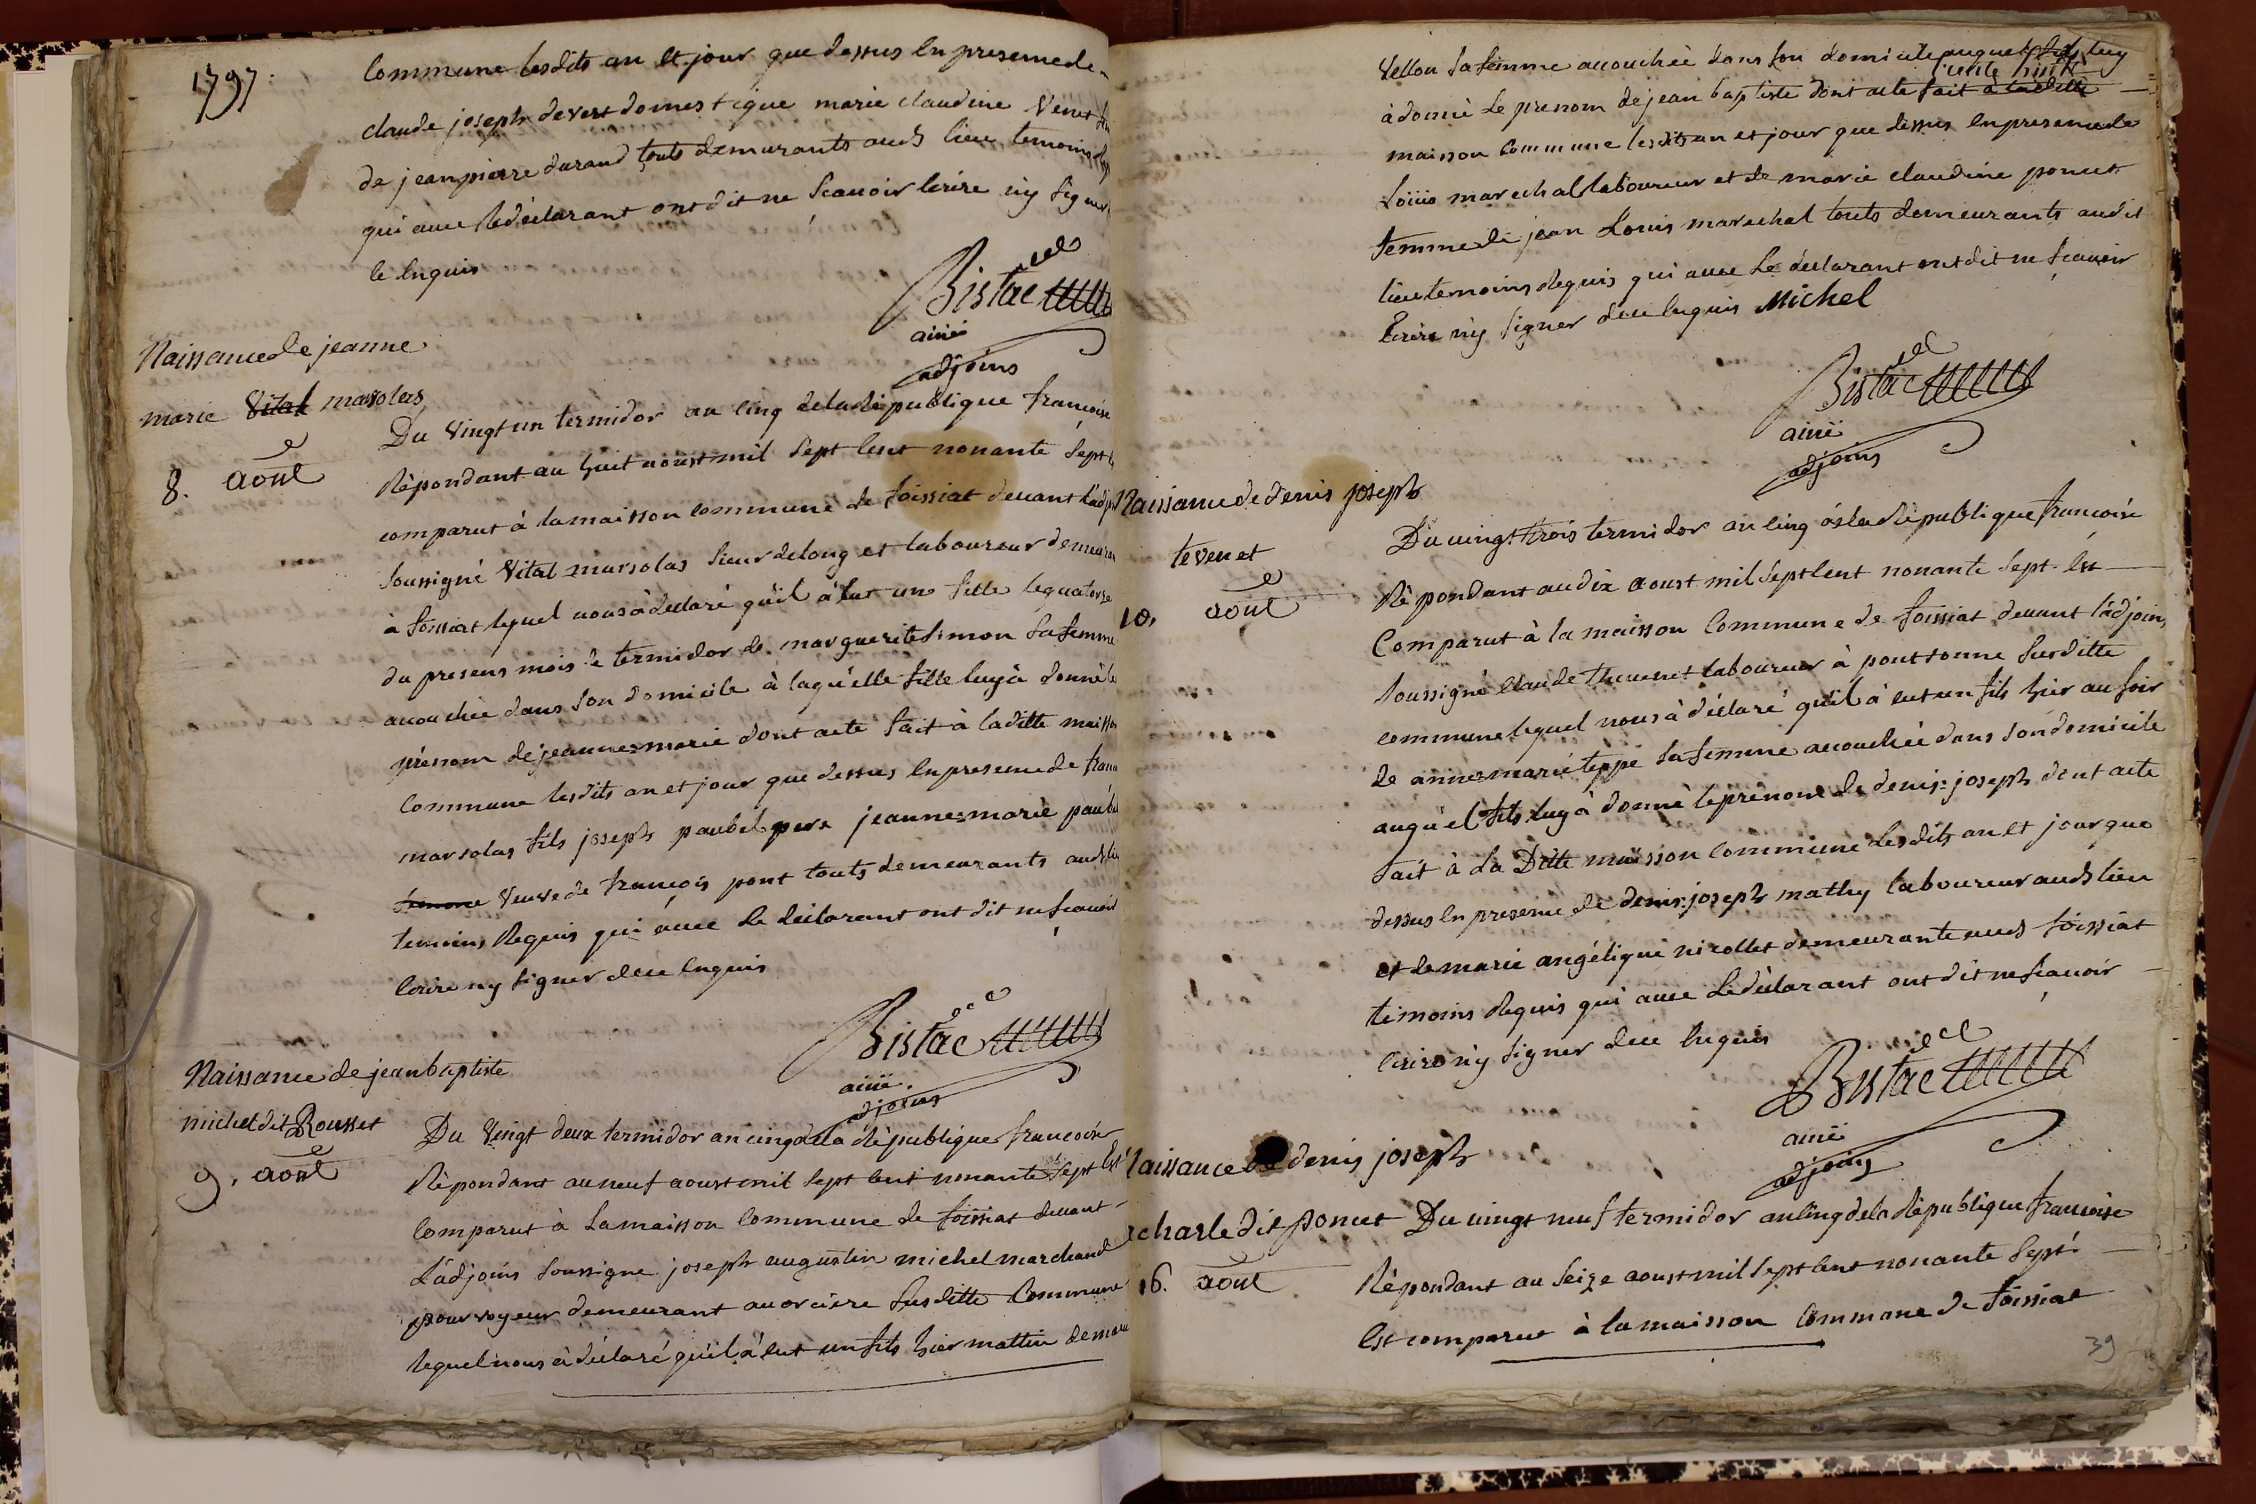 1797:
Commune lesdits an et jour que dessus en presence de
claude joseph devert domestique marie claudine Venet
de jean pierre durand touts demurants auds lieu temoins
qui avec le déclarant ont dit ne scavoir écrire ny signer
de ce enquis
Bistac
ainé
adjoins
Naissance de jeanne
marie Vital marsolas
8. aout
Du vingt un termidor an cinq de la république francoise
Répondant au huit aoust mil sept cent nonante sept
comparut à la maisson commune de foissiat devant l'adj
soussigné Vital marsolas sieur delong et laboureur demeurant
à foissiat lequel nous à déclaré qu'il à eut un fille le quatorze
du presens mois de termidor de marguerite simon sa femme
accouchée dans son domicile à laqu'elle fille luy à donné le
prénom de jeanne=marie dont acte fait à laditte maisson
commune lesdits an et jour que dessus en presence de
marsolas fils joseph paubel pere jeanne=marie
femme veuve de francois pont touts demeurants auds lieu
temoins Requis qui avec le déclarant ont dit ne scavoir
écrire ny signer de ce enquis
Bistac
ainé
adjoins
Naissance de jean baptiste
michel dit Rousset
9. aout
Du vingt deux termidor an cinq de la République francoise
Répondant au neuf aoust mil sept cent nonante sept est
comparut à la maisson commune de foissiat devant
L'adjoins soussigné joseph augustin michel marchand
pourvoyeur demeurant au orcière susditte Commune
lequel nous à déclaré qu'il à eut un fils hier mattin de
Vellon sa femme accouchée dans son domicile auquel fils luy
à donné le prénom de jean baptiste dont acte fait a laditte
maisson commune lesdits an et jour que dessus en presence de
Louis marechal laboureur et de marie claudine poncet
femme de jean Louis marechal touts demeurants audit
lieu temoins Requis qui avec le déclarant ont dit ne scavoir
Ecrire ny signer de ce enquis Michel
Bistac
ainé
adjoins
Naissance de denis joseph
tevenet
10. aout
Du vingt trois termidor an cinq de la République francoise
Répondant au dix aoust mil sept cent nonante sept est
Comparut à la maisson Commune de foissiat devant l'adjoins
soussigné claude thevenet laboureur à ponttonne susditte
commune lequel nous à déclaré qu'il à eut un fils hier au soir
de anne=marie teppe sa femme accouchée dans son domicile
auqu'el fils luy à donné le prénom de denis=joseph dont acte
fait à la Ditte maisson commune lesdits an et jour que
dessus en presence de denis=joseph mathy laboureur auds lieu
et de marie angélique nicollet demeurante auds foissiat
témoins Requis qui avec le déclarant ont dit ne scavoir
écrire ny signer de ce enquis
Bistac
ainé
adjoins
Naissance de denis joseph
charle dit poncet
16. aout
Du vingt neuf termidor an cinq de la République francoise
Répondant au seize aoust mil sept cent nonante sept
Est comparut à la maisson Commune de foissiat
39